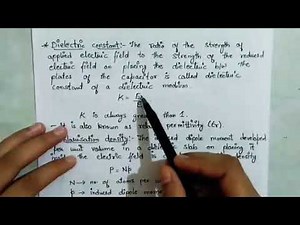 * Dielectric constant:- The ratio of the strength of
applied electric field to the strength of the reduced
electric field on placing the dielectric b/w the
plates of the capacitor is called dielectric
constant of a dielectric medium.
K = E₀
K is always greater than 1.
- It is also known as permittivity (Er)
density:- The induced dipole moment developed
per unit volume in a dielectric slab on placing it
inside the electric field is density
P = Np
N → no of atoms per unit
p → induced dipole